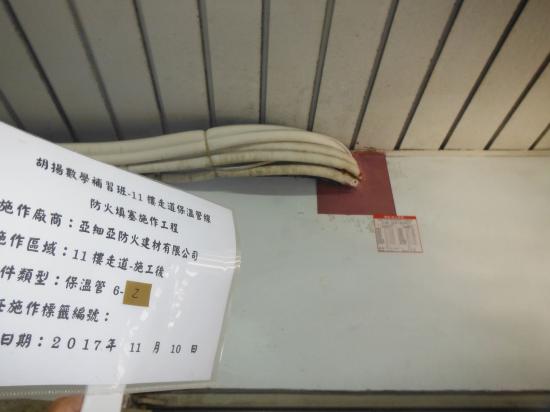 胡揚數學補習班-11樓走道保溫管線
防火填塞施作工程
施作廠商：亞細亞防火建材有限公司
施作區域：11樓走道-施工後
件類型：保溫管 6-2
施作標籤編號：
日期：2017年 11月 10日